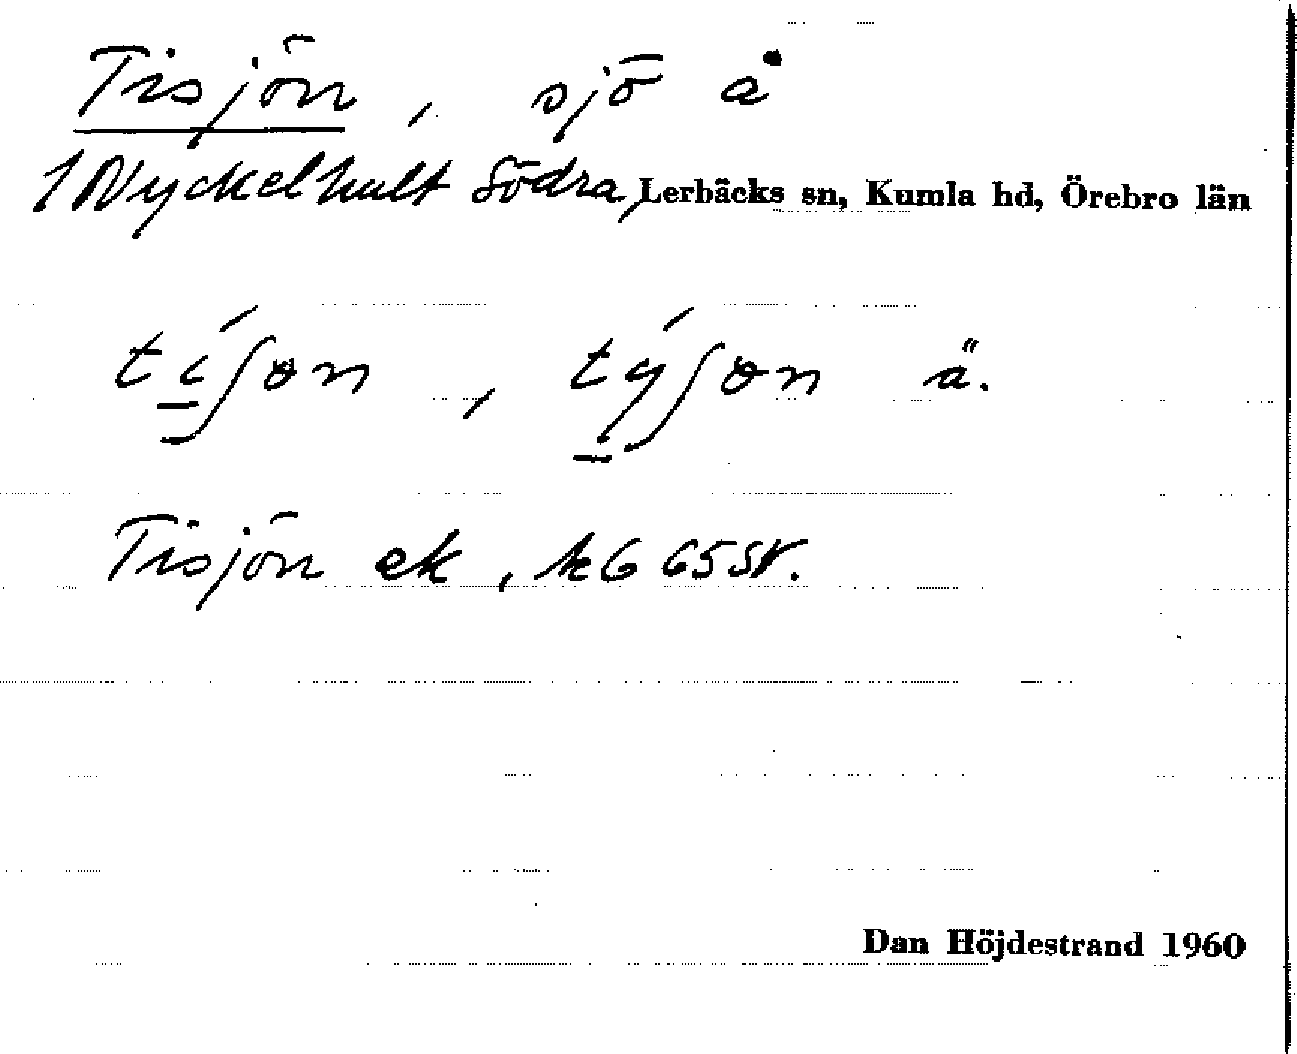 Tisjön, sjö å
1 Nyckelhult Södra, Lerbäcks sn, Kumla hd, Örebro län
tíʃɵn, týʃɵn ä.
Tisjön ek, k6 65 SV.
Dan Höjdestrand 1960